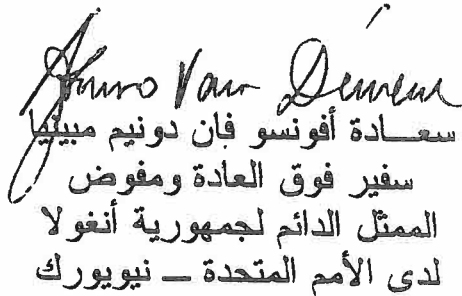 Van
سعـــادة أفونسو فان دونيم مبينيا
سفير فوق العادة ومفوض
الممثل الدائم لجمهورية أنغولا
لدى الأمم المتحدة ـــ نيويورك